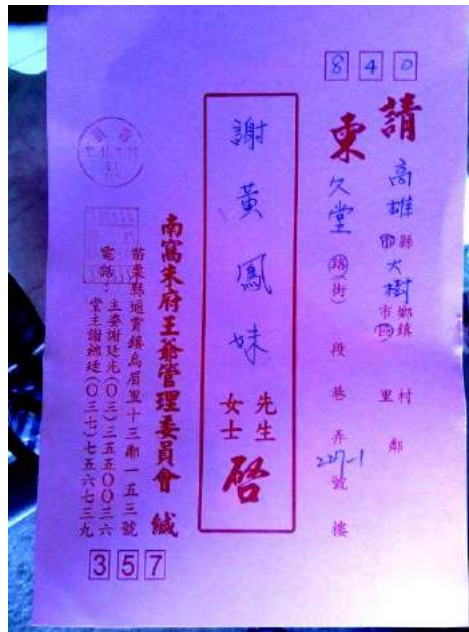 840
請
高雄市縣大樹鄉鎮市區村里鄰
柬
久堂路(街)段巷弄227-1號樓
謝黃鳳妹
先生
女士
啓
南窩朱府王爺管理委員會 緘
苗栗縣通霄鎮烏眉里十三鄰一五三號
電話：
主委謝廷光(〇三)三五五〇〇三六
堂主謝鄉廷(〇三七)七五六七三九
357